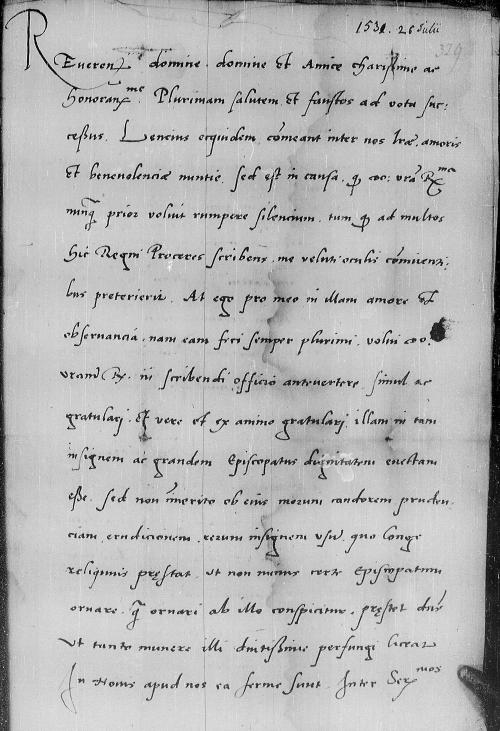 1531. 26 Julii
329
Reverend. domine. domine et Amice charissime ac
honorandme. Plurimam salutem et faustos ad vota suc:
cessus. Lencius ecquidem comeant inter nos lræ, amoris
et benevolenciæ nuntie, sed est in causa. qp vra Rma
nunq prior voluit rumpere silencium. tum qp ad multos
hic Regni Proceres scribens, me veluti oculis coniventi:
bus preterierit. At ego pro meo in illam amore et
observancia, nam eam feci semper plurimi, volui
vram R. in scribendi officio antevertere, simul ac
gratulari, et vere et ex animo gratulari illam in tam
insignem ac grandem Episcopatus dignitatem evectam
esse. Sed non imerito ob eius morum candorem pruden
ciam, erudicionem, rerum insignem usu, quo longe
reliquis prestat, ut non minus certe Episcopatum
ornare, q ornari ab illo conspicitur. prestet dns
Ut tanto munere illi diutissime perfungi liceat
In Novis apud nos ea ferme sunt. Inter Sermos